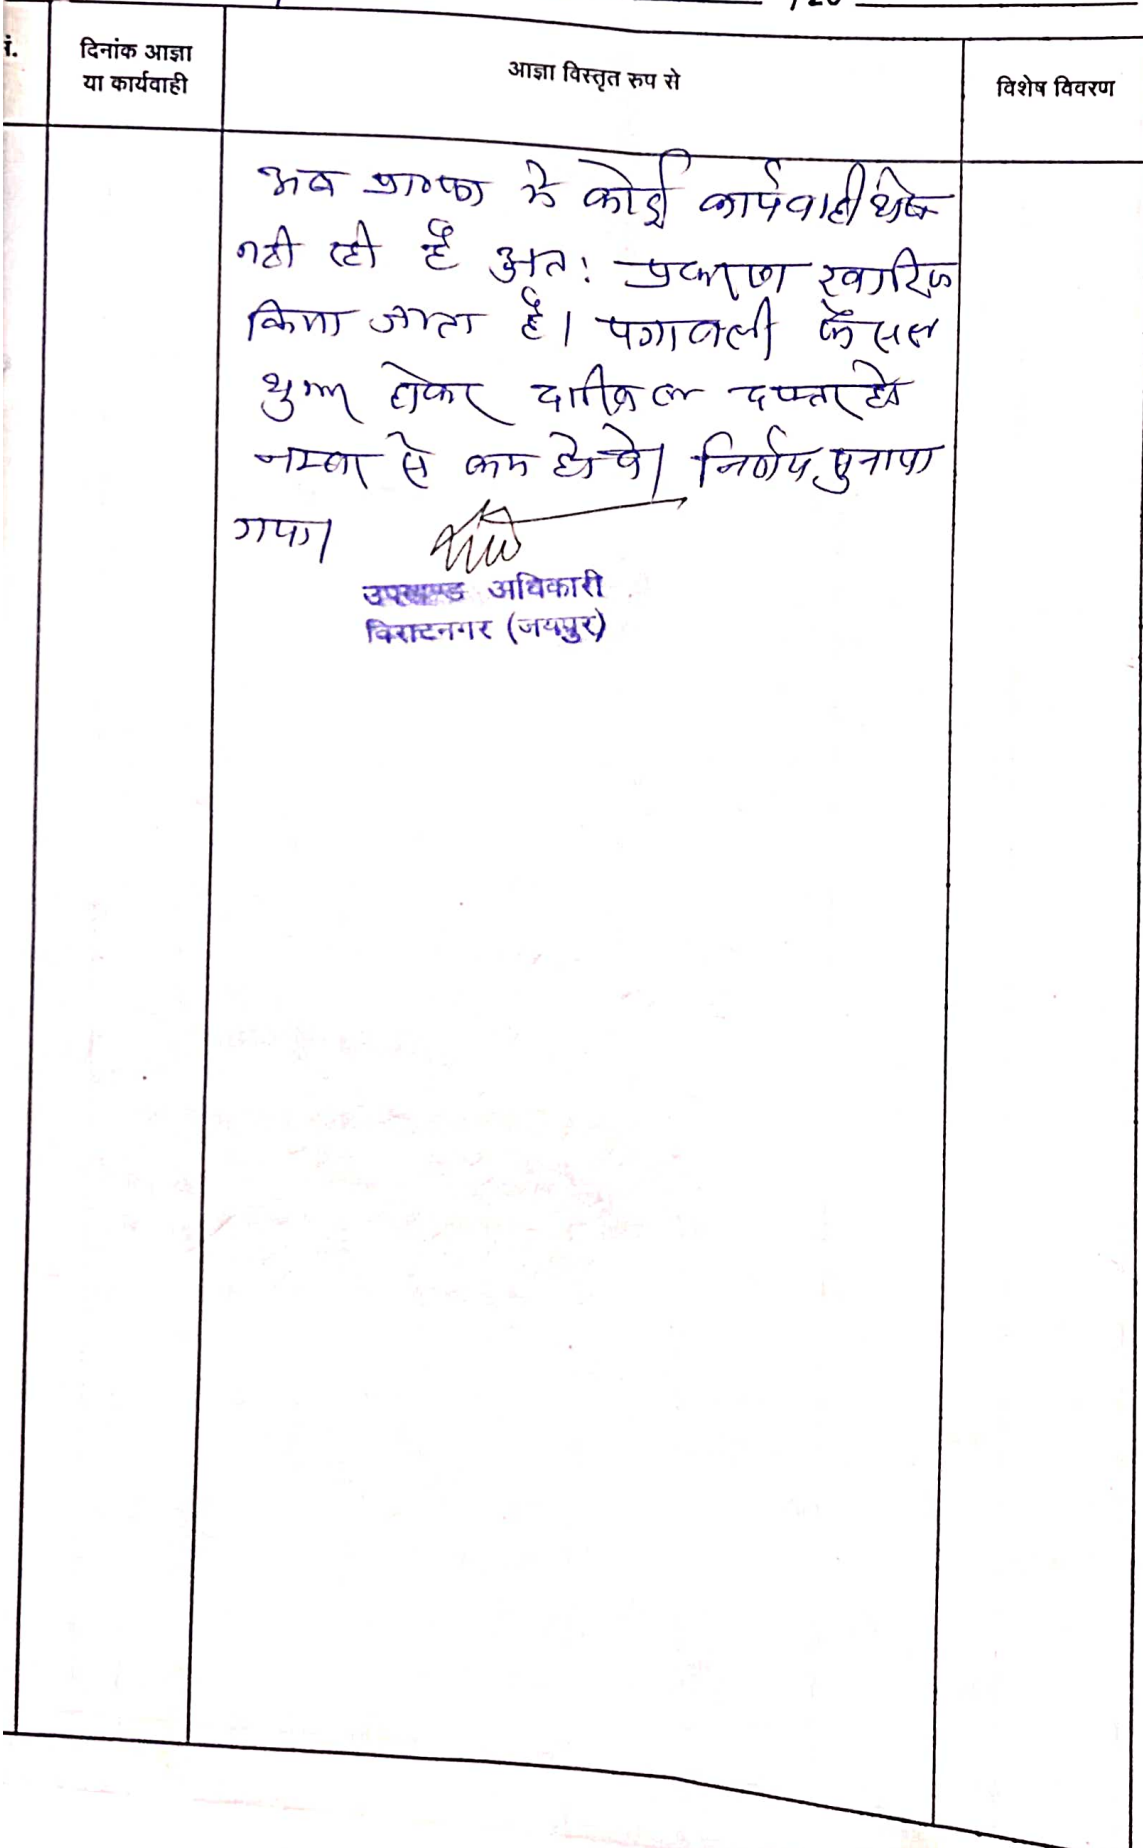 /20
नं.
दिनांक आज्ञा
या कार्यवाही
आज्ञा विस्तृत रूप से
विशेष विवरण
अब प्रकरण में कोई कार्यवाही शेष
नही रही है अतः प्रकरण खारिज
किया जाता है। पत्रावली फैसल
शुमार होकर दाखिल दफ्तर हो
नम्बर से कम होवे। निर्णय सुनाया
गया।
उपखण्ड अधिकारी
विराटनगर (जयपुर)